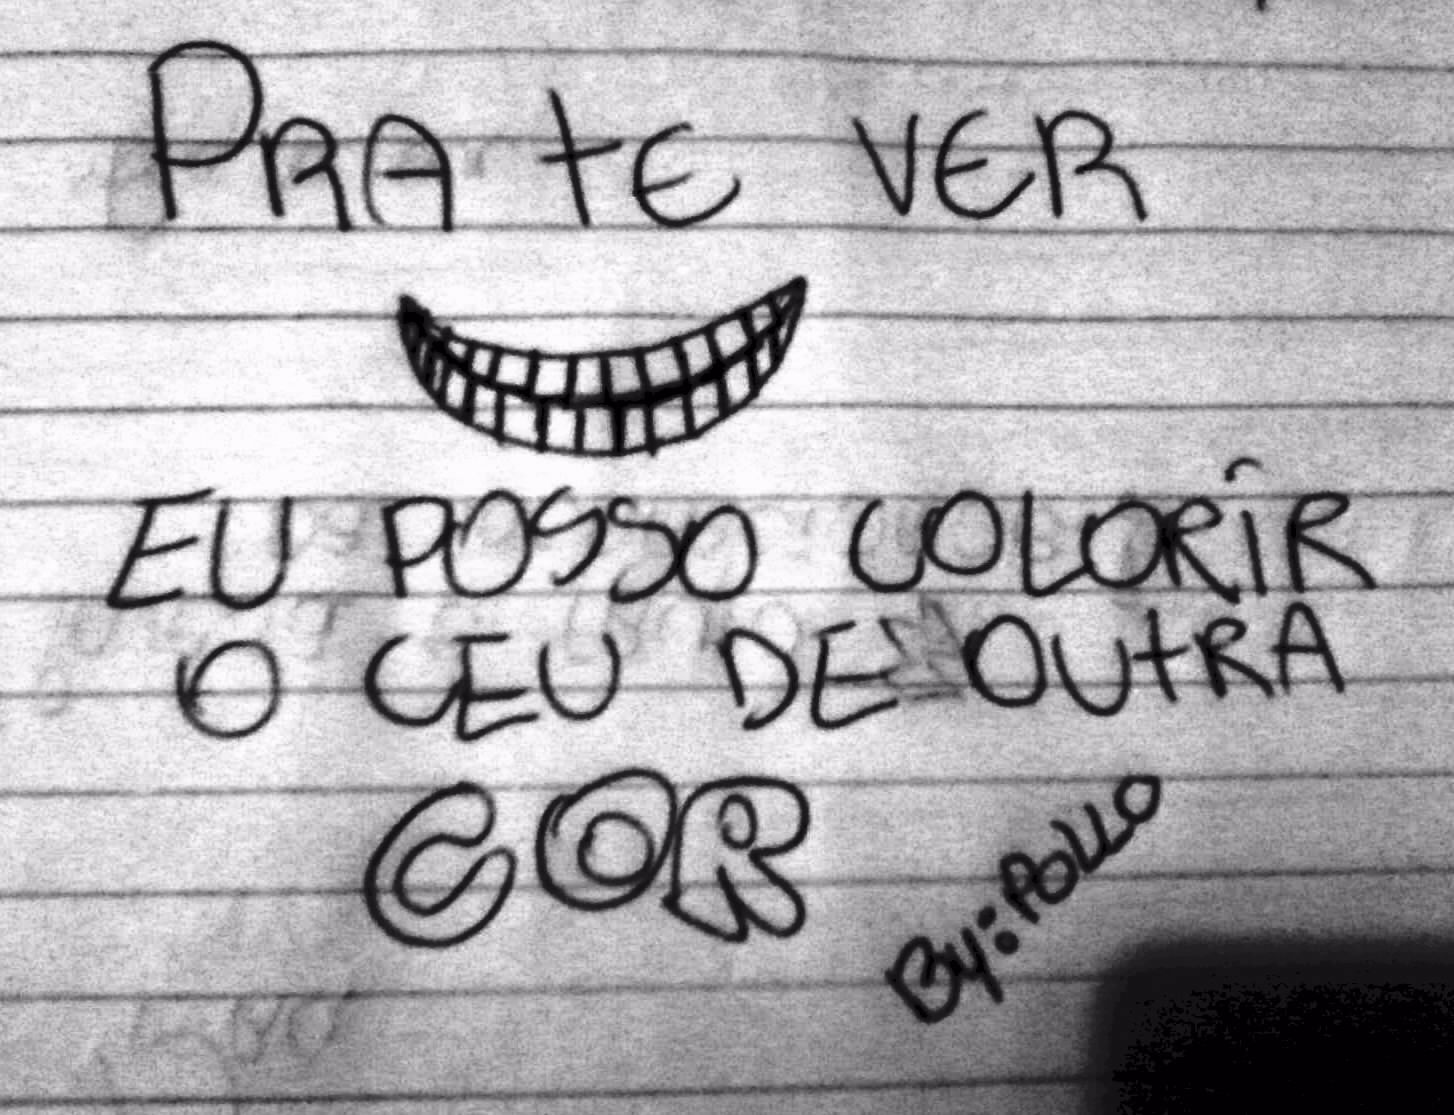 PRA tE VER
EU POSSO COLORIR
O CEU DE OUtRA
COR
By: POLLO